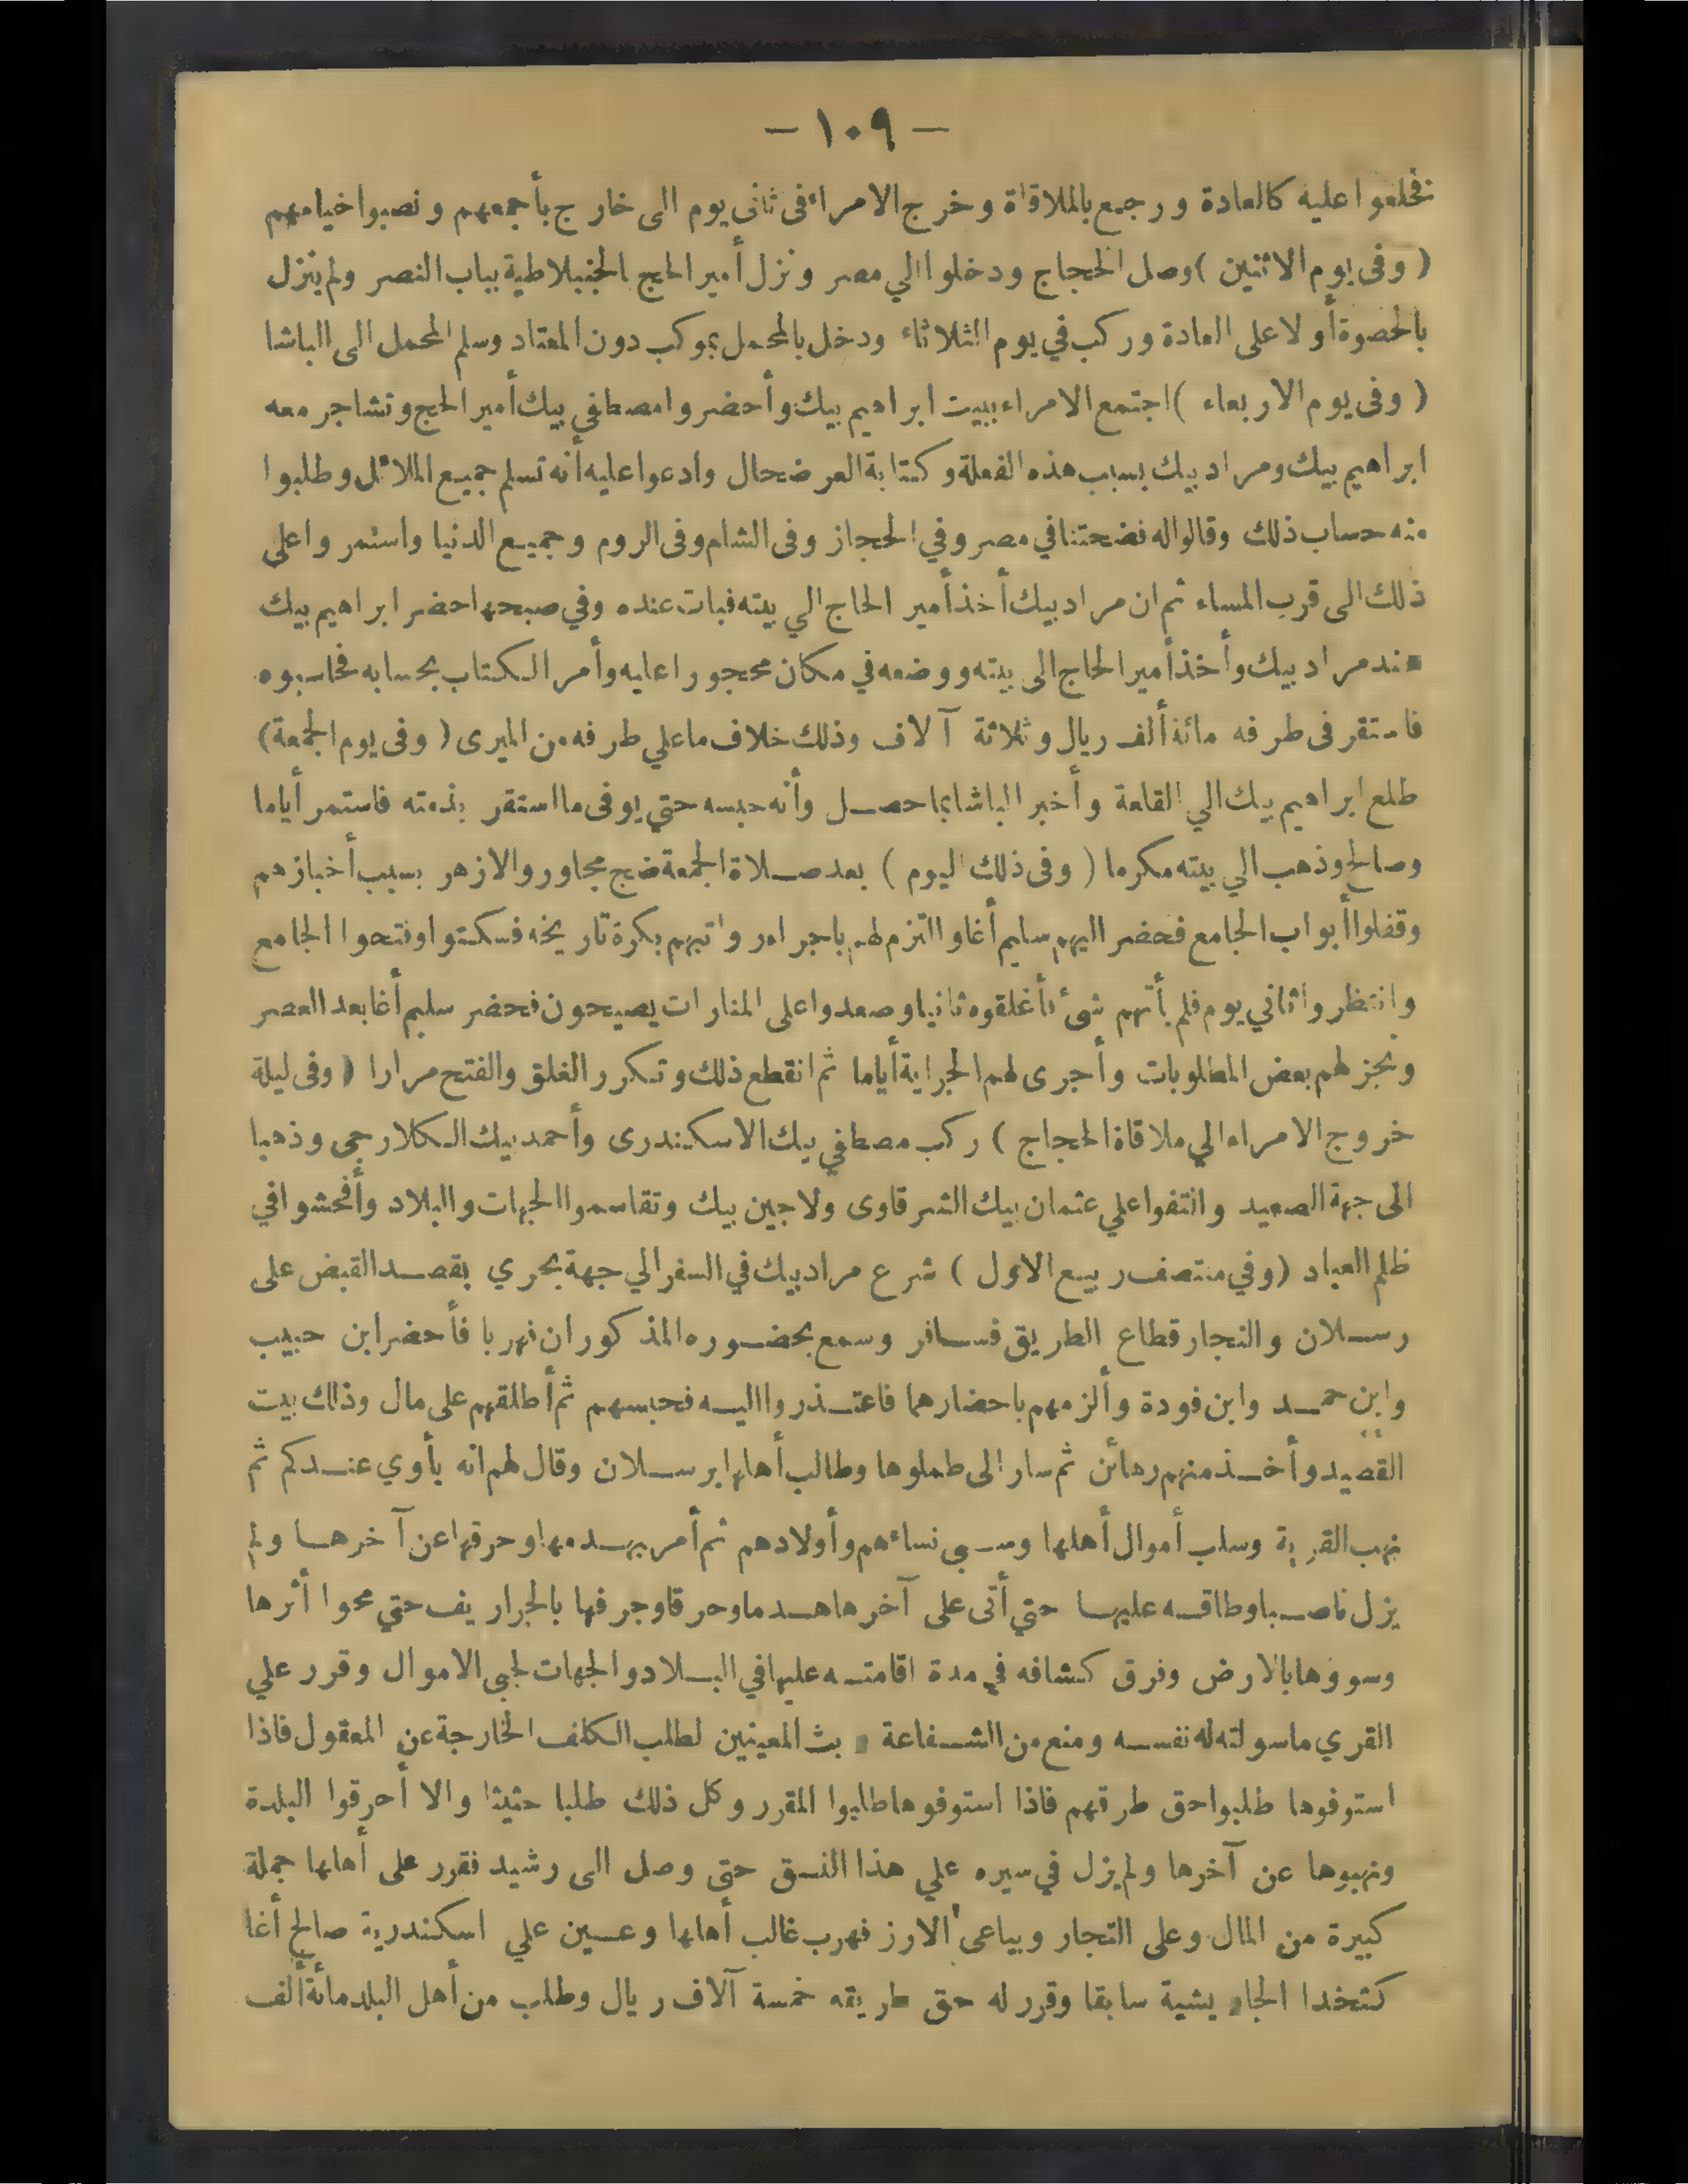 — ١٠٩ —
فخلعوا عليه كالعادة ورجع بالملاقاة وخرج الامراء فى ثانى يوم الى خارج بأجمعهم ونصبوا خيامهم
( وفى يوم الاثنين ) وصل الحجاج ودخلوا الي مصر ونزل أمير الحج الجنبلاطية بباب النصر ولم ينزل
بالحصوة أولا على العادة وركب في يوم الثلاثاء ودخل بالمحمل بموكب دون المعتاد وسلم المحمل الى الباشا
( وفى يوم الاربعاء ) اجتمع الامراء ببيت ابراهيم بيك وأحضروا مصطفي بيك أمير الحج وتشاجر معه
ابراهيم بيك ومراد بيك بسبب هذه الفعلة وكتابة العرضحال وادعوا عليه أنه تسلم جميع الملائل وطلبوا
منه حساب ذلك وقالوا له فضحتنا في مصر وفي الحجاز وفى الشام وفى الروم وجميع الدنيا واستمروا على
ذلك الى قرب المساء ثم ان مراد بيك أخذ أمير الحاج الي بيته فبات عنده وفي صبحها حضر ابراهيم بيك
عند مراد بيك وأخذ أمير الحاج الى بيته ووضعه في مكان محجورا عليه وأمر الكتاب بحسابه فحاسبوه
فاستقر فى طرفه مائة ألف ريال وثلاثة آلاف وذلك خلاف ما علي طرفه من الميرى ( وفى يوم الجمعة )
طلع ابراهيم بيك الي القلعة وأخبر الباشا بما حصل وأنه حبسه حتي يوفى ما استقر بذمته فاستمر أياما
وصالح وذهب الي بيته مكرما ( وفى ذلك اليوم ) بعد صلاة الجمعة ضج مجاورو الازهر بسبب أخبازهم
وقفلوا أبواب الجامع فحضر اليهم سليم أغا والتزم لهم باجراء رواتبهم بكرة تاريخه فسكتوا وفتحوا الجامع
وانتظروا ثاني يوم فلم يأتهم شئ فأغلقوه ثانيا وصعدوا على المنارات يصيحون فحضر سليم أغا بعد العصر
ونجز لهم بعض المطلوبات وأجرى لهم الجراية أياما ثم انقطع ذلك وتكرر الغلق والفتح مرارا ( وفى ليلة
خروج الامراء الي ملاقاة الحجاج ) ركب مصطفي بيك الاسكندرى وأحمد بيك الكلارجى وذهبا
الى جهة الصعيد والتفوا علي عثمان بيك الشرقاوى ولاجين بيك وتقاسموا الجهات والبلاد وأفحشوا في
ظلم العباد ( وفي منتصف ربيع الاول ) شرع مراد بيك في السفر الي جهة بحري بقصد القبض على
رسلان والنجار قطاع الطريق فسافر وسمع بحضوره المذكوران فهربا فأحضر ابن حبيب
وابن حمد وابن فودة وألزمهم باحضارهما فاعتذروا اليه فحبسهم ثم أطلقهم على مال وذلك بيت
القصيد وأخذ منهم رهائن ثم سار الى طملوها وطالب أهلها برسلان وقال لهم انه يأوي عندكم ثم
نهب القرية وسلب أموال أهلها وسبى نساءهم وأولادهم ثم أمر بهدمها وحرقها عن آخرها ولم
يزل ناصبا وطاقه عليها حتي أتى على آخرها هدما وحرقا وجرفها بالجراريف حتي محوا أثرها
وسووها بالارض وفرق كشافه في مدة اقامته عليها في البلاد والجهات لجبى الاموال وقرر علي
القري ما سولته له نفسه ومنع من الشفاعة وبث المعينين لطلب الكلف الخارجة عن المعقول فاذا
استوفوها طلبوا حق طرقهم فاذا استوفوها طلبوا المقرر وكل ذلك طلبا حثيثا والا أحرقوا البلدة
ونهبوها عن آخرها ولم يزل في سيره علي هذا النسق حتى وصل الى رشيد فقرر على أهلها جملة
كبيرة من المال وعلى التجار وبياعى الارز فهرب غالب أهلها وعين علي اسكندرية صالح أغا
كتخدا الجاويشية سابقا وقرر له حق طريقه خمسة آلاف ريال وطلب من أهل البلد مائة ألف